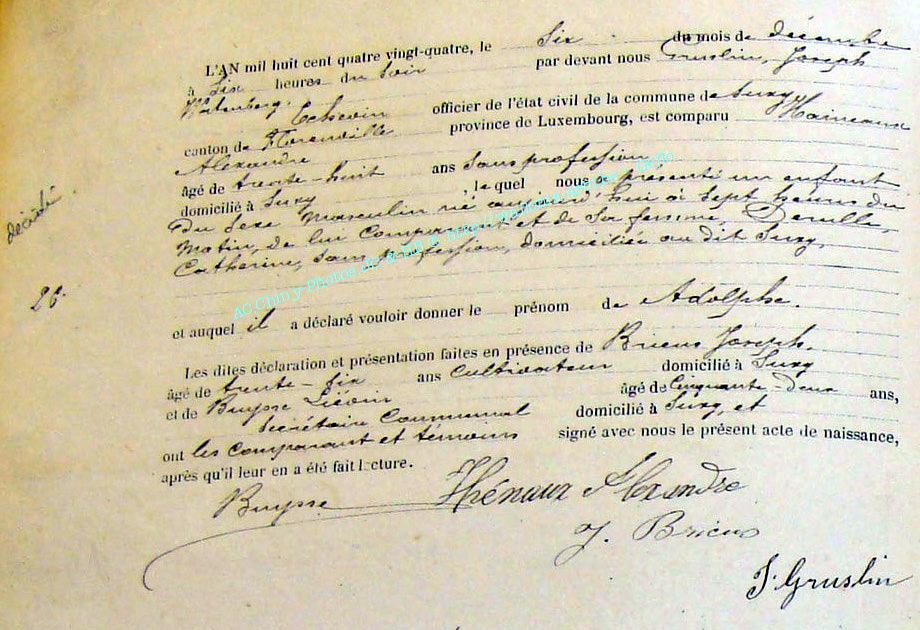 L'AN mil huit cent quatre vingt-quatre, le Six du mois de décembre
à Six heures du Soir par devant nous Gruslin, Joseph
Echevin officier de l'état civil de la commune de Suxy
canton de Florenville province de Luxembourg, est comparu Haineaux
Alexandre
âgé de trente-huit ans Sans profession
domicilié à Suxy, le quel nous a présenté un enfant
du Sexe Masculin né aujourd'hui à Sept heures du
Matin, de lui Comparant et de Sa femme,
Catherine, Sans profession, domiciliée au dit Suxy,
décédé
26.
et auquel il a déclaré vouloir donner le prénom de Adolphe.
Les dites déclaration et présentation faites en présence de Bricus Joseph,
âgé de trente-six ans Cultivateur domicilié à Suxy
et de Buysse Liévin âgé de Cinquante-Deux ans,
Secrétaire Communal domicilié à Suxy, et
ont les comparant et témoins signé avec nous le présent acte de naissance,
après qu'il leur en a été fait lecture.
Buysse Hénaux Alexandre
J. Bricus
J. Gruslin